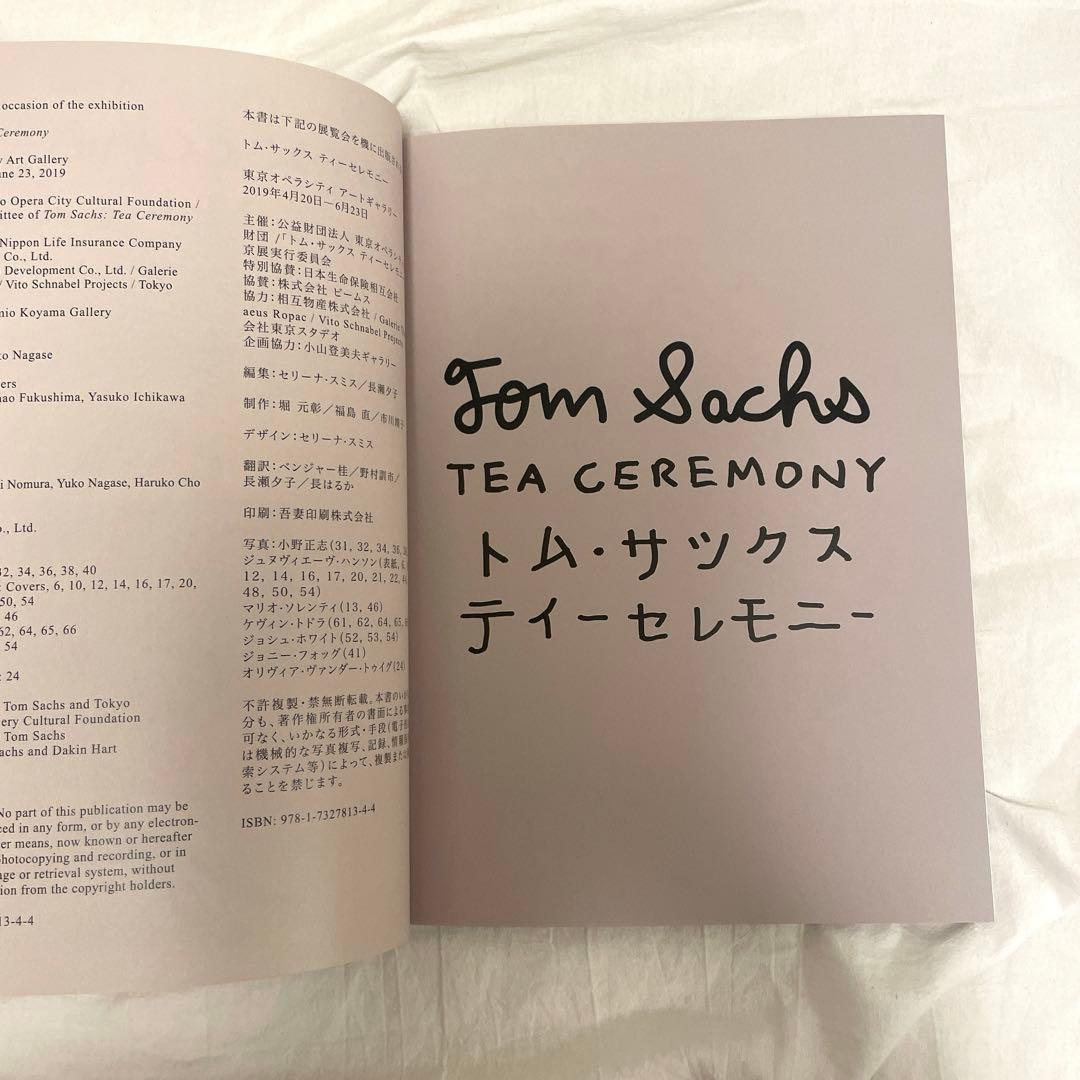 occasion of the exhibition
Ceremony
Art Gallery
June 23, 2019
Opera City Cultural Foundation /
ittee of Tom Sachs: Tea Ceremony
Nippon Life Insurance Company
Co., Ltd.
Development Co., Ltd. / Galerie
/ Vito Schnabel Projects / Tokyo
Koyama Gallery
Nagase
Fukushima, Yasuko Ichikawa
Nomura, Yuko Nagase, Haruko Cho
Ltd.
32, 34, 36, 38, 40
Covers, 6, 10, 12, 14, 16, 17, 20,
50, 54
46
62, 64, 65, 66
54
24
Tom Sachs and Tokyo
ery Cultural Foundation
Tom Sachs
achs and Dakin Hart
No part of this publication may be
ced in any form, or by any electron-
er means, now known or hereafter
photocopying and recording, or in
age or retrieval system, without
ion from the copyright holders.
13-4-4
本書は下記の展覧会を機に出版され
トム・サックス ティーセレモニー
東京オペラシティ アートギャラリー
2019年4月20日―6月23日
主催:公益財団法人 東京オペラシティ
財団 /「トム・サックス ティーセレモニ
京展実行委員会
特別協賛:日本生命保険相互会社
協賛:株式会社 ビームス
協力:相互物産株式会社 / Galerie
aeus Ropac / Vito Schnabel Projects
会社東京スタデオ
企画協力:小山登美夫ギャラリー
編集:セリーナ・スミス/長瀬夕子
制作:堀 元彰/福島 直/市川靖子
デザイン:セリーナ・スミス
翻訳:ベンジャー桂/野村訓市/
長瀬夕子/長はるか
印刷:吾妻印刷株式会社
写真:小野正志(31, 32, 34, 36,
ジュヌヴィエーヴ・ハンソン(表紙, 6,
12, 14, 16, 17, 20, 21, 22, 44,
48, 50, 54)
マリオ・ソレンティ(13, 46)
ケヴィン・トドラ(61, 62, 64, 65,
ジョシュ・ホワイト(52, 53, 54)
ジョニー・フォッグ(41)
オリヴィア・ヴァンダー・トゥイグ(24)
不許複製・禁無断転載。本書のいか
分も、著作権所有者の書面による
可なく、いかなる形式・手段(電子
は機械的な写真複写、記録、情報
索システム等)によって、複製また
ることを禁じます。
ISBN: 978-1-7327813-4-4
Tom Sachs
TEA CEREMONY
トム・サックス
ティーセレモニー